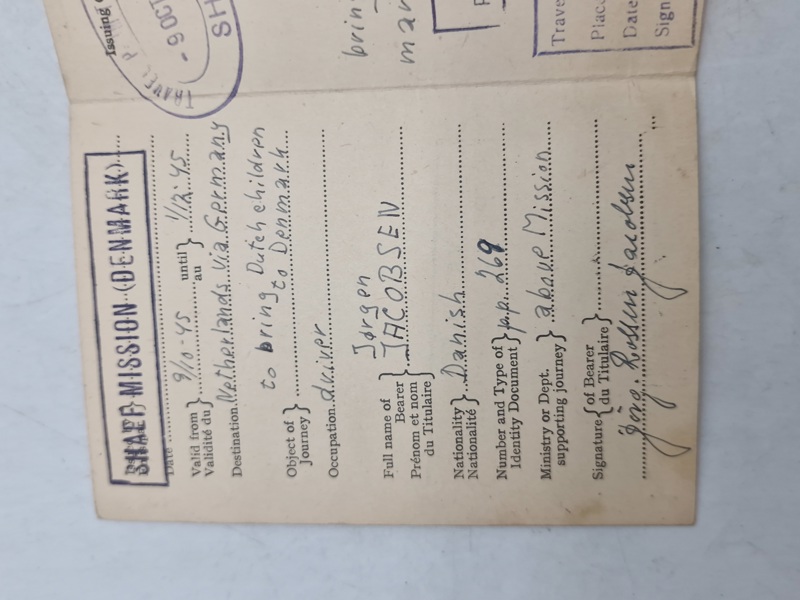 SHAEF MISSION (DENMARK)
Date
Valid from } 9/10-45 until } 1/12-45
Validité du } au }
Destination Netherlands via Germany
to bring Dutch children
Object of } to Denmark
Journey }
Occupation driver
Jørgen
Full name of Bearer } JACOBSEN
Prénom et nom du Titulaire }
Nationality } Danish
Nationalité }
Number and Type of } p.p. 269
Identity Document }
Ministry or Dept. } above Mission
supporting journey }
Signature { of Bearer }
du Titulaire }
Jacobsen
Issuing
TRAVEL
- 9 OCT
SH
bring
Trave
Place
Date
Sign